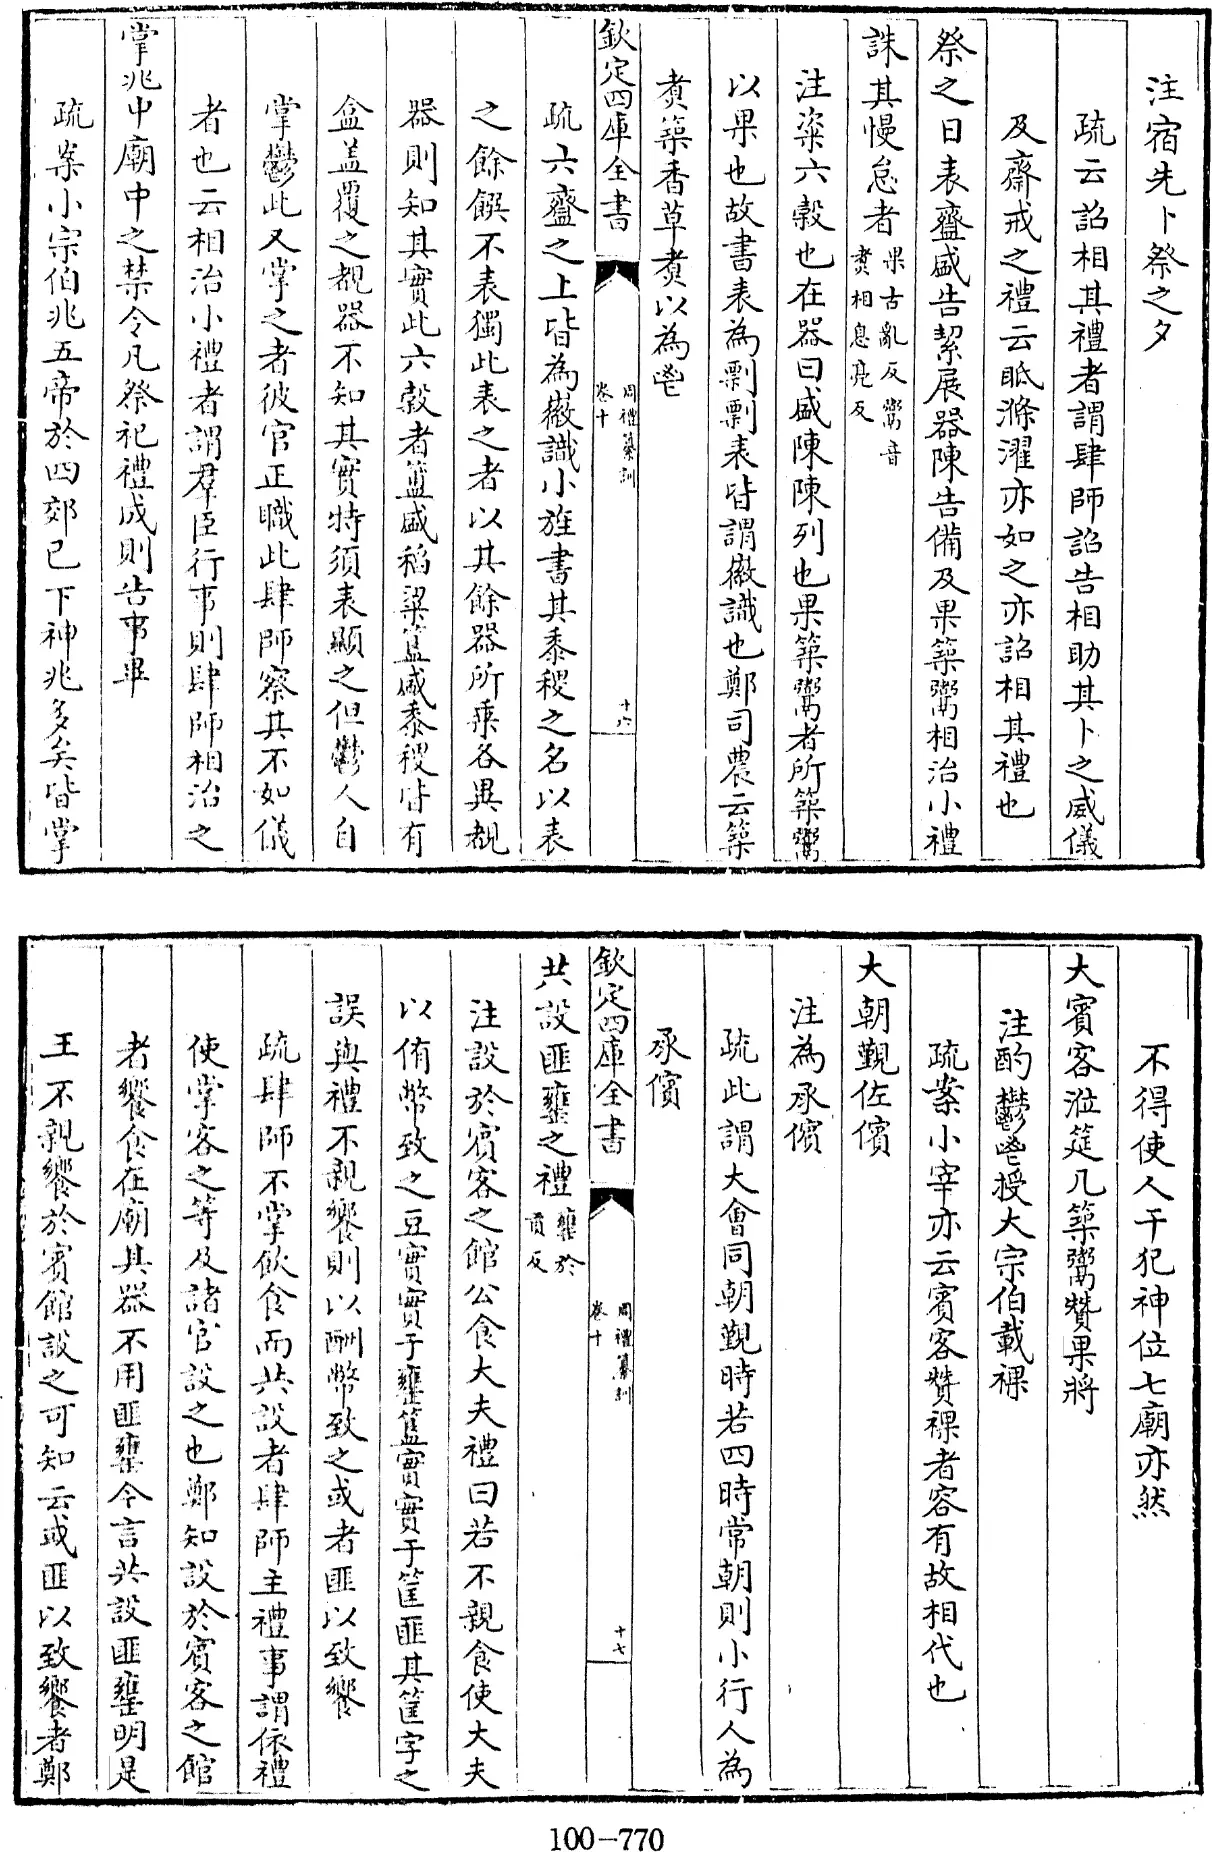 注宿先卜祭之夕
疏云詔相其禮者謂肆師詔告相助其卜之威儀
及齋戒之禮云眡滌濯亦如之亦詔相其禮也
祭之日表齍盛告絜展器陳告備及果築鬻相治小禮
誅其慢怠者果古亂反鬻音煑相息亮反
注粢六榖也在器曰盛陳陳列也果築鬻者所築鬻
以果也故書表為剽剽表皆謂徽識也鄭司農云築
煑築香草煑以為鬯
欽定四庫全書 周禮纂訓 卷十 十六
疏六齍之上皆為徽識小旌書其黍稷之名以表
之餘饌不表獨此表之者以其餘器所乘各異覩
器則知其實此六榖者簠盛稻粱簋盛黍稷皆有
盒盖覆之覩器不知其實特須表顯之但鬱人自
掌鬱此又掌之者彼官正職此肆師察其不如儀
者也云相治小禮者謂羣臣行事則肆師相治之
掌兆中廟中之禁令凡祭祀禮成則告事畢
疏案小宗伯兆五帝於四郊已下神兆多矣皆掌
不得使人干犯神位七廟亦然
大賓客涖筵几築鬻贊果將
注酌鬱鬯授大宗伯載祼
疏案小宰亦云賓客贊祼者容有故相代也
大朝覲佐儐
注為承儐
疏此謂大會同朝覲時若四時常朝則小行人為
承儐
欽定四庫全書 周禮纂訓 卷十 十七
共設匪罋之禮罋於貢反
注設於賓客之館公食大夫禮曰若不親食使大夫
以侑幣致之豆實實于罋簋實實于筐匪其筐字之
誤與禮不親饗則以酬幣致之或者匪以致饗
疏肆師不掌飲食而共設者肆師主禮事謂依禮
使掌客之等及諸官設之也鄭知設於賓客之館
者饗食在廟其器不用匪罋今言共設匪罋明是
王不親饗於賓館設之可知云或匪以致饗者鄭
100-770